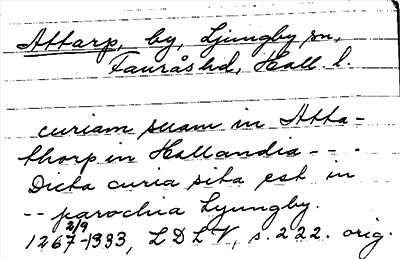 Attarp, by, Ljungby sn,
Fauråshd, Hall. l.
curiam suam in Atta-
thorp in Hallandia -- .
Dicta curia sita est in
-- parochia Lyungby.
2/9
1267-1393, LDLV, s. 222. orig.